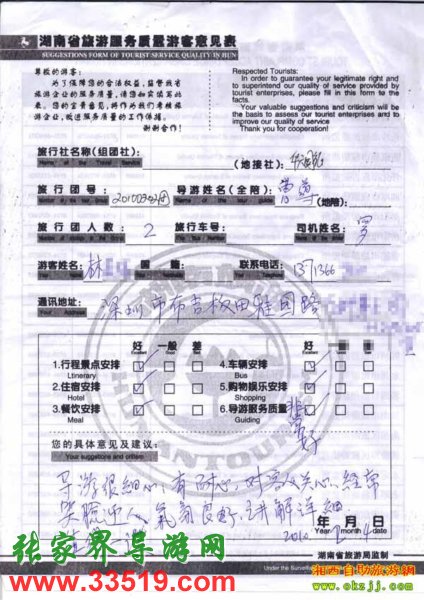 湖南省旅游服务质量游客意见表
SUGGESTIONS FORM OF TOURIST SERVICE QUALITY IN HUN
尊敬的游客:
为了保障您的合法权益,监督我省旅游企业的服务质量,请您如实填写此表。您的宝贵意见,将作为我们考核旅游企业,改进服务质量的工作依据。
谢谢合作!
Respected Tourists:
In order to guarantee your legitimate right and
to superintend our quality of service provided by
tourist enterprises, please fill in this form to the
facts.
Your valuable suggestions and criticism will be
the basis to assess our tourist enterprises and to
improve our quality of service
Thank you for cooperation!
旅行社名称(组团社):
(地接社):
旅行团号:
导游姓名(全陪):
(地陪):
旅行团人数: 2
旅行车号:
司机姓名: 罗
游客姓名: 林
国籍:
联系电话: 1371366
通讯地址: 深圳市布吉板田雅园路
Your Address
好 一般 差
Excellent
好
Excellent
1.行程景点安排
Ltinerary
4.车辆安排
Bus
2.住宿安排
Hotel
5.购物娱乐安排
Shopping
3.餐饮安排
Meal
6.导游服务质量
Guiding
非常好
您的具体意见及建议:
Your suggestions and critism
导游很细心,有耐心,对客人关心,经常
笑脸迎人,气氛良好,讲解详细
年 月 日
Year Month Date
湖南省旅游局监制
Under the Surveill
张家界导游网
www.33519.com
湘西自助旅游网
www.okzjj.com